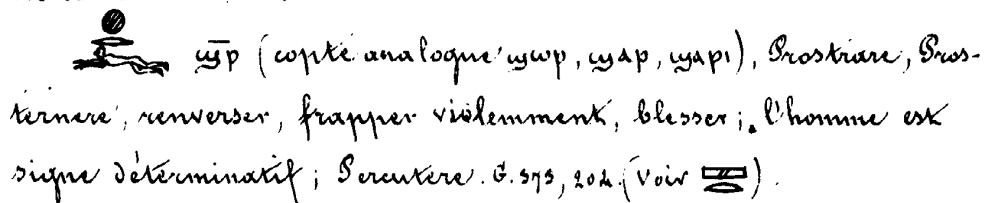 ϣ̅ⲣ̅ (copte analogue ϣⲱⲣ, ϣⲁⲣ, ϣⲁⲣⲓ), Prostrare, Pros-
ternere, renverser, frapper violemment, blesser; l'homme est
signe déterminatif; Percutere. G. 373, 204. (Voir 𓈙𓂋).